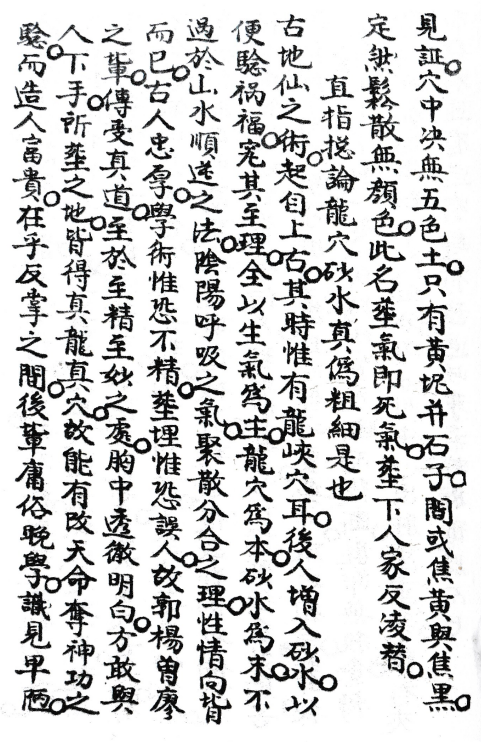 見証穴中决無五色土只有黄坭并石子間或焦黄與焦黑
定然鬆散無顏色此名塟氣即死氣塟下人家反凌替
直指捴論龍穴砂水真偽粗細是也
古地仙之術起自上古其時惟有龍峽穴耳後人增入砂水以
便驗禍福究其至理全以生氣為主龍穴為本砂水為末不
過於山水順逆之法陰陽呼吸之氣聚散分合之理性情向背
而已古人忠厚學術惟恐不精塟埋惟恐誤人故郭楊曾廖
之輩傳受真道至於至精至妙之處胸中透徹明白方敢與
人下手所塟之地皆得真龍真穴故能有改天命奪神功之
驗而造人富貴在乎反掌之間後輩庸俗晚學識見卑陋